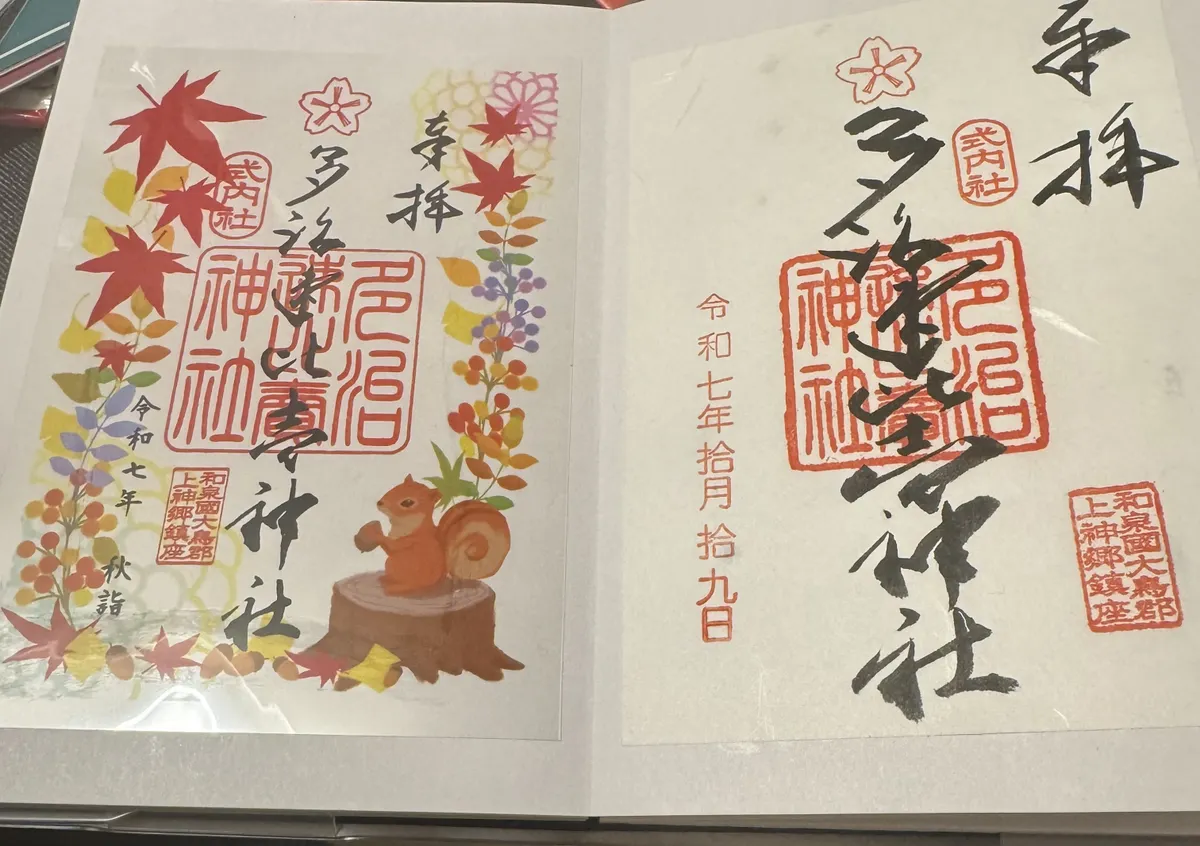 奉拝
式内社
和泉國大鳥郡
上神郷鎮座
多治速比売神社
多治
速比賣
神社
令和七年拾月拾九日
奉拝
多治速比売神社
式内社
多治
速比賣
神社
和泉國大鳥郡
上神郷鎮座
令和七年 秋詣